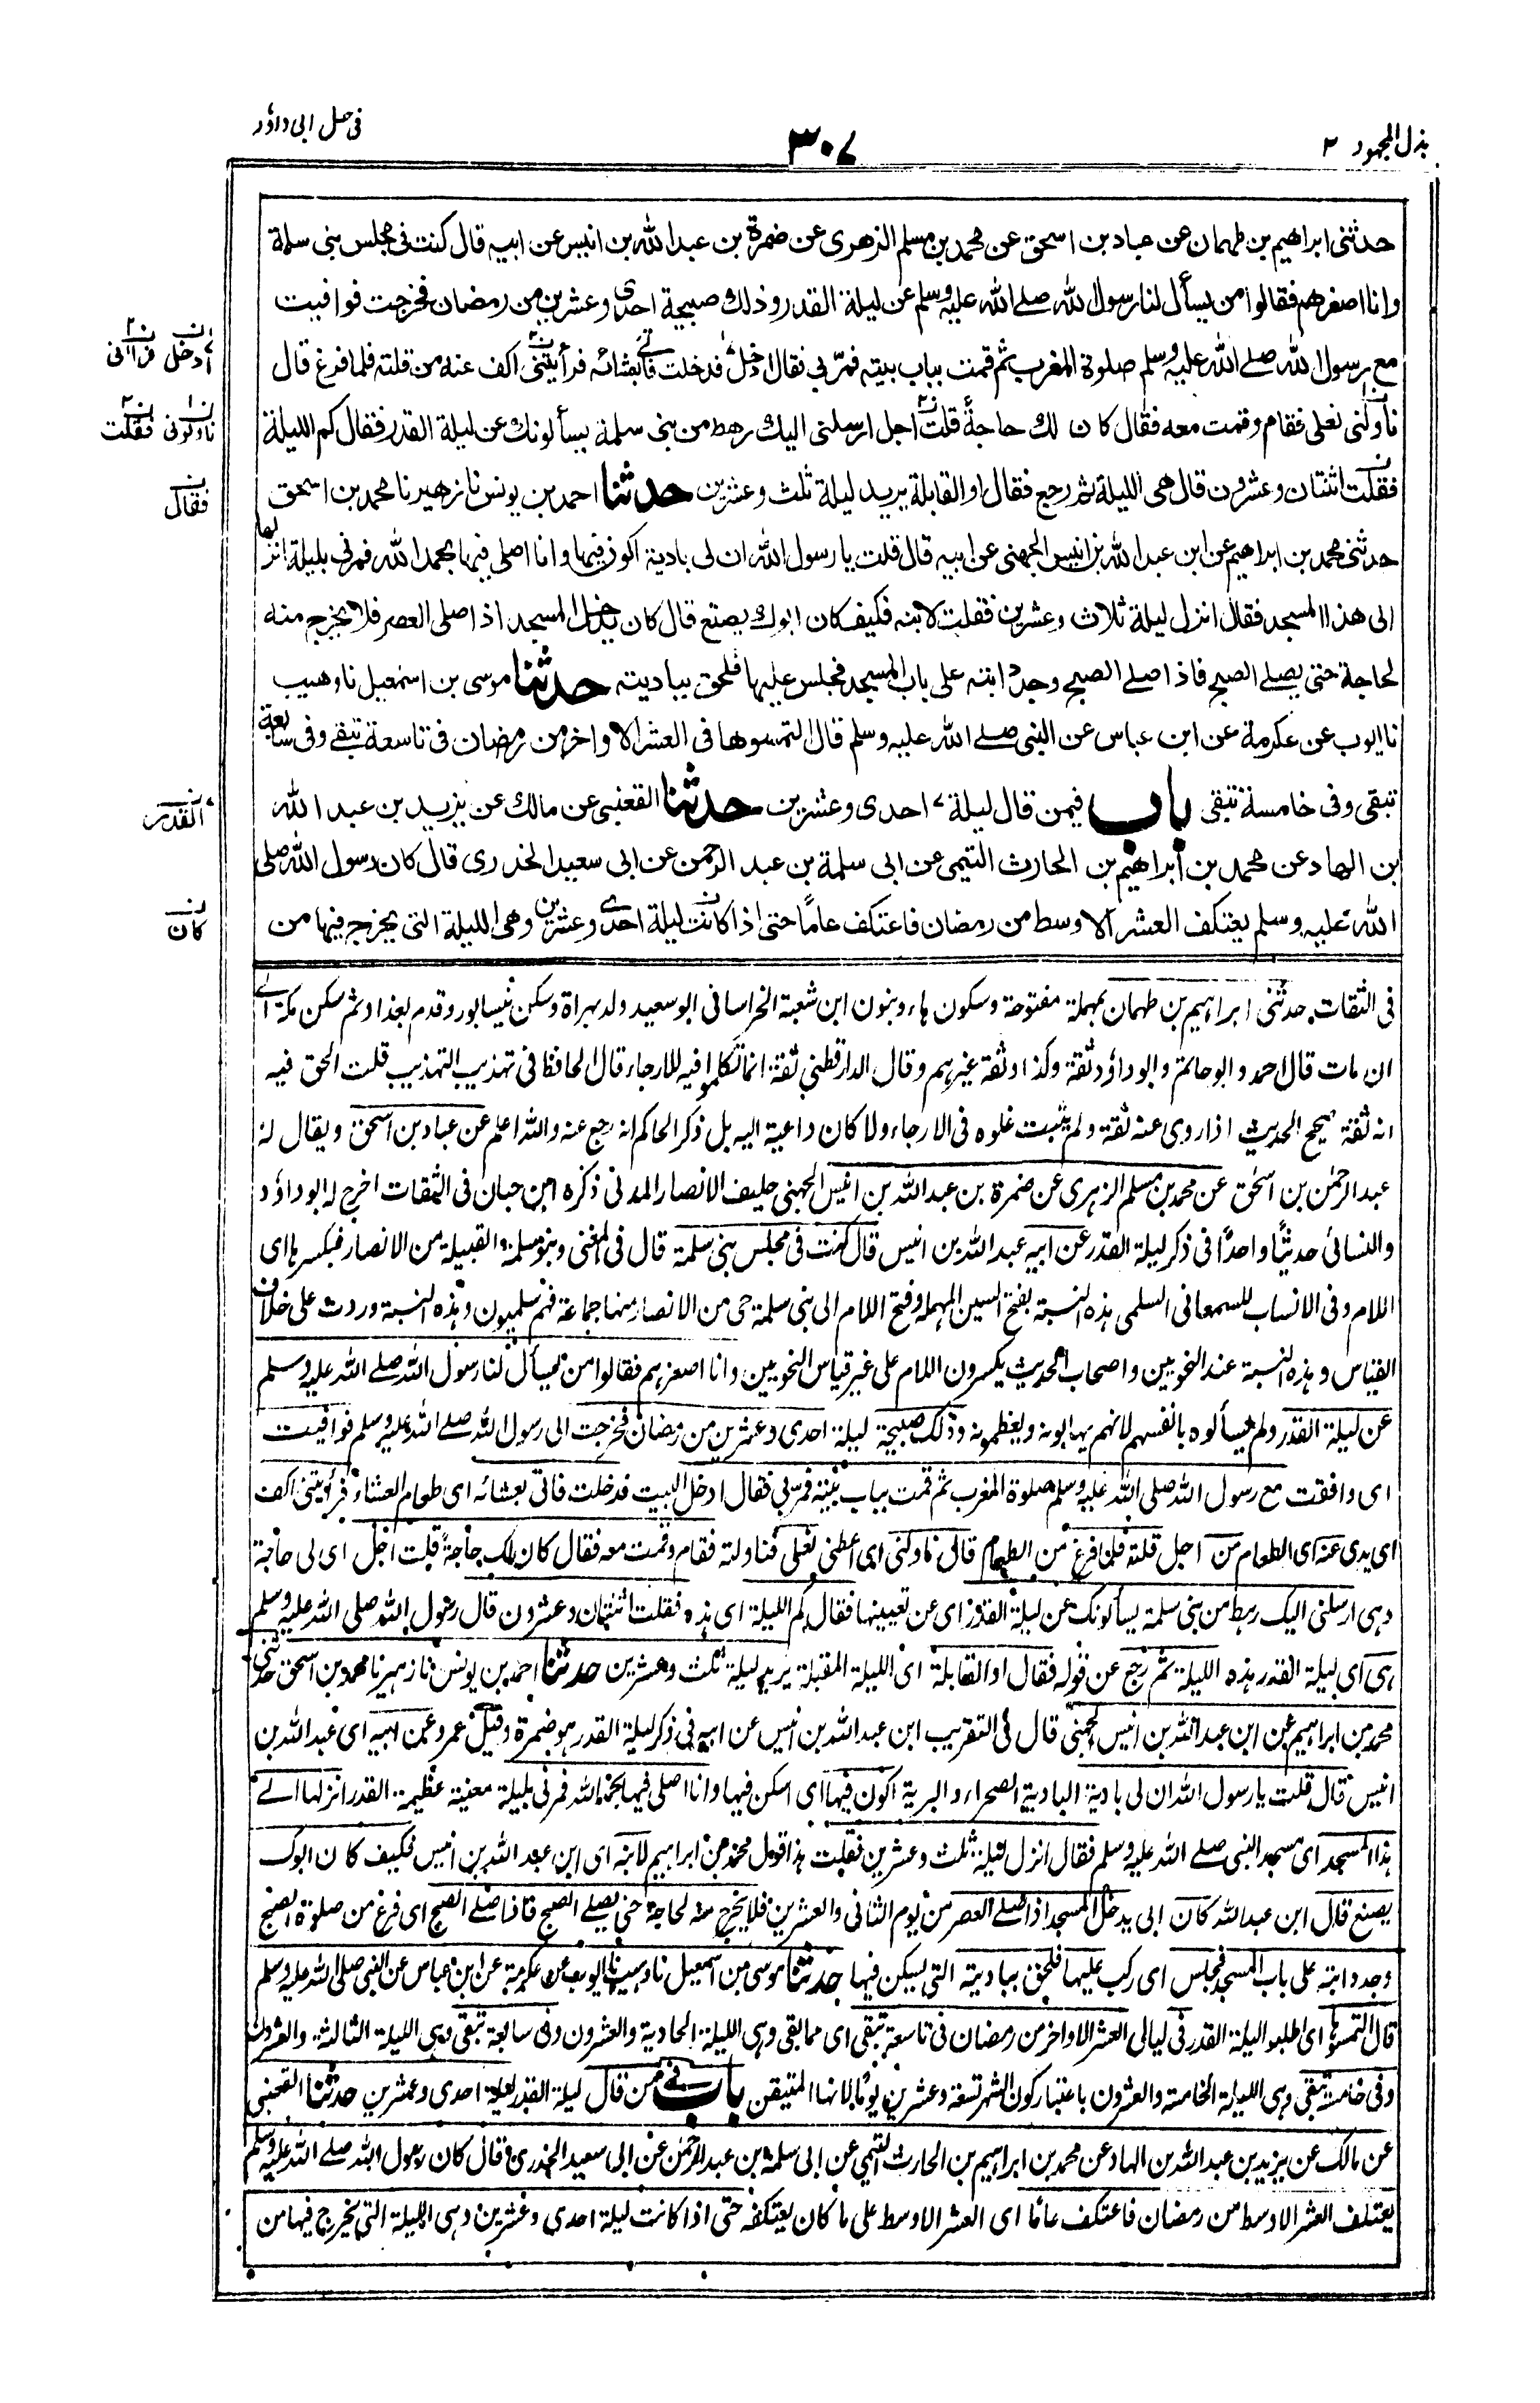 بذل المجهود ٢
٣٠٧
فى حل ابى داؤد
حدثنى ابراهيم بن طهمان عن عباد بن اسحق عن محمد بن مسلم الزهرى عن ضمرة بن عبد الله بن انيس عن ابيه قال كنت فى مجلس بنى سلمة
وانا اصغرهم فقالوا من يسأل لنا رسول الله صلے الله عليه وسلم عن ليلة القدر وذلك صبيحة احدى وعشرين من رمضان فخرجت فوافيت
مع رسول الله صلے الله عليه وسلم صلوة المغرب ثم قمت بباب بيته فمرّ بى فقال ادخل فدخلت فأتى بعشائه فرأيتنى اكف عنه من قلته فلما فرغ قال
ناولنى نعلى فقام وقمت معه فقال كان لك حاجة قلت اجل ارسلنى اليك رهط من بنى سلمة يسألونك عن ليلة القدر فقال كم الليلة
فقلت اثنتان وعشرون قال هى الليلة ثم رجع فقال او القابلة يريد ليلة ثلث وعشرين حدثنا احمد بن يونس نا زهير نا محمد بن اسحق
حدثنى محمد بن ابراهيم عن ابن عبد الله بن انيس الجهنى عن ابيه قال قلت يا رسول الله ان لى بادية اكون فيها وانا اصلى فيها بحمد الله فمرنى بليلة انزلها
الى هذا المسجد فقال انزل ليلة ثلاث وعشرين فقلت لابنه فكيف كان ابوك يصنع قال كان يدخل المسجد اذا صلى العصر فلا يخرج منه
لحاجة حتى يصلے الصبح فاذا صلے الصبح وجد دابته على باب المسجد فجلس عليها فلحق بباديته حدثنا موسى بن اسمعيل نا وهيب
نا ايوب عن عكرمة عن ابن عباس عن النبى صلے الله عليه وسلم قال التمسوها فى العشر الاواخر من رمضان فى تاسعة تبقے وفى سابعة
تبقى وفى خامسة تبقى باب فيمن قال ليلة احدى وعشرين حدثنا القعنبى عن مالك عن يزيد بن عبد الله
بن الهاد عن محمد بن ابراهيم بن الحارث التيمى عن ابى سلمة بن عبد الرحمن عن ابى سعيد الخدرى قال كان رسول الله صلى
الله عليه وسلم يعتكف العشر الاوسط من رمضان فاعتكف عاما حتى اذا كانت ليلة احدى وعشرين وهى الليلة التى يخرج فيها من
ادخل فرآنى
ناولونى فقلت
فقال
القدر
كان
فى الثقات. حدثنى ابراهيم بن طهمان بمهملة مفتوحة وسكون هاء وبنون ابن شعبة الخراسانى ابو سعيد ولد بهراة وسكن نيسابور وقدم بغداد ثم سكن مكة الے
ان مات قال احمد وابو حاتم وابو داؤد ثقة وكذا وثقة غيرهم وقال الدارقطنى ثقة انما تكلموا فيه للارجاء قال الحافظ فى تهذيب التهذيب قلت الحق فيه
انه ثقة صحيح الحديث اذا روى عنه ثقة ولم يثبت غلوه فى الارجاء ولا كان داعية اليه بل ذكر الحاكم انه رجع عنه والله اعلم عن عباد بن اسحق ويقال له
عبد الرحمن بن اسحق عن محمد بن مسلم الزهرى عن ضمرة بن عبد الله بن انيس الجهنى حليف الانصار المدنى ذكره ابن حبان فى الثقات اخرج له ابو داؤد
والنسائى حديثا واحدا فى ذكر ليلة القدر عن ابيه عبد الله بن انيس قال كنت فى مجلس بنى سلمة قال فى المغنى وبنو سلمة القبيلة من الانصار فبكسرها اى
اللام وفى الانساب للسمعانى السلمى هذه النسبة بفتح السين المهملة وفتح اللام الى بنى سلمة حى من الانصار منها جماعة فهم سلميون وهذه النسبة وردت على خلاف
القياس وهذه النسبة عند النحويين واصحاب الحديث يكسرون اللام على غير قياس النحويين وانا اصغرهم فقالوا من يسأل لنا رسول الله صلے الله عليه وسلم
عن ليلة القدر ولم يسألوه بانفسهم لانهم يهابونه ويعظمونه وذلك صبيحة ليلة احدى وعشرين من رمضان فخرجت الى رسول الله صلے الله عليه وسلم فوافيت
اى وافقت مع رسول الله صلى الله عليه وسلم صلوة المغرب ثم قمت بباب بيته فمرّ بى فقال ادخل البيت فدخلت فاتى بعشائه اى طعام العشاء فرأيتنى اكف
اى يدى عنه اى الطعام من اجل قلته فلما فرغ من الطعام قال ناولنى اى اعطنى نعلى فناولته فقام وقمت معه فقال كان لك حاجة قلت اجل اى لى حاجة
وهى ارسلنى اليك رهط من بنى سلمة يسألونك عن ليلة القدر اى عن تعيينها فقال كم الليلة اى هذه فقلت اثنتان وعشرون قال رسول الله صلى الله عليه وسلم
هى اى ليلة القدر هذه الليلة ثم رجع عن قوله فقال او القابلة اى الليلة المقبلة يريد ليلة ثلث وعشرين حدثنا احمد بن يونس نا زهير نا محمد بن اسحق حدثنى
محمد بن ابراهيم عن ابن عبد الله بن انيس الجهنى قال فى التقريب ابن عبد الله بن انيس عن ابيه فى ذكر ليلة القدر هو ضمرة وقيل عمرو عن ابيه اى عبد الله بن
انيس قال قلت يا رسول الله ان لى بادية البادية الصحراء والبرية اكون فيها اى اسكن فيها وانا اصلى فيها بحمد الله فمرنى بليلة معينة عظيمة القدر انزلها الے
هذا المسجد اى مسجد النبى صلے الله عليه وسلم فقال انزل ليلة ثلث وعشرين فقلت هذا قول محمد بن ابراهيم لابنه اى ابن عبد الله بن انيس فكيف كان ابوك
يصنع قال ابن عبد الله كان ابى يدخل المسجد اذا صلے العصر من يوم الثانى والعشرين فلا يخرج منه لحاجة حتى يصلے الصبح فاذا صلے الصبح اى فرغ من صلوة الصبح
وجد دابته على باب المسجد فجلس اى ركب عليها فلحق بباديته التى يسكن فيها حدثنا موسى بن اسمعيل نا وهيب نا ايوب عن عكرمة عن ابن عباس عن النبى صلى الله عليه وسلم
قال التمسوها اى اطلبوا ليلة القدر فى ليالى العشر الاواخر من رمضان فى تاسعة تبقى اى مما بقى وهى الليلة الحادية والعشرون وفى سابعة تبقى وهى الليلة الثالثة والعشرون
وفى خامسة تبقى وهى الليلة الخامسة والعشرون باعتبار كون الشهر تسعة وعشرين يوما لانها المتيقن باب فى من قال ليلة القدر ليلة احدى وعشرين حدثنا القعنبى
عن مالك عن يزيد بن عبد الله بن الهاد عن محمد بن ابراهيم بن الحارث التيمى عن ابى سلمة بن عبد الرحمن عن ابى سعيد الخدرى قال كان رسول الله صلے الله عليه وسلم
يعتكف العشر الاوسط من رمضان فاعتكف عاما اى العشر الاوسط على ما كان يعتكفه حتى اذا كانت ليلة احدى وعشرين وهى الليلة التى يخرج فيها من